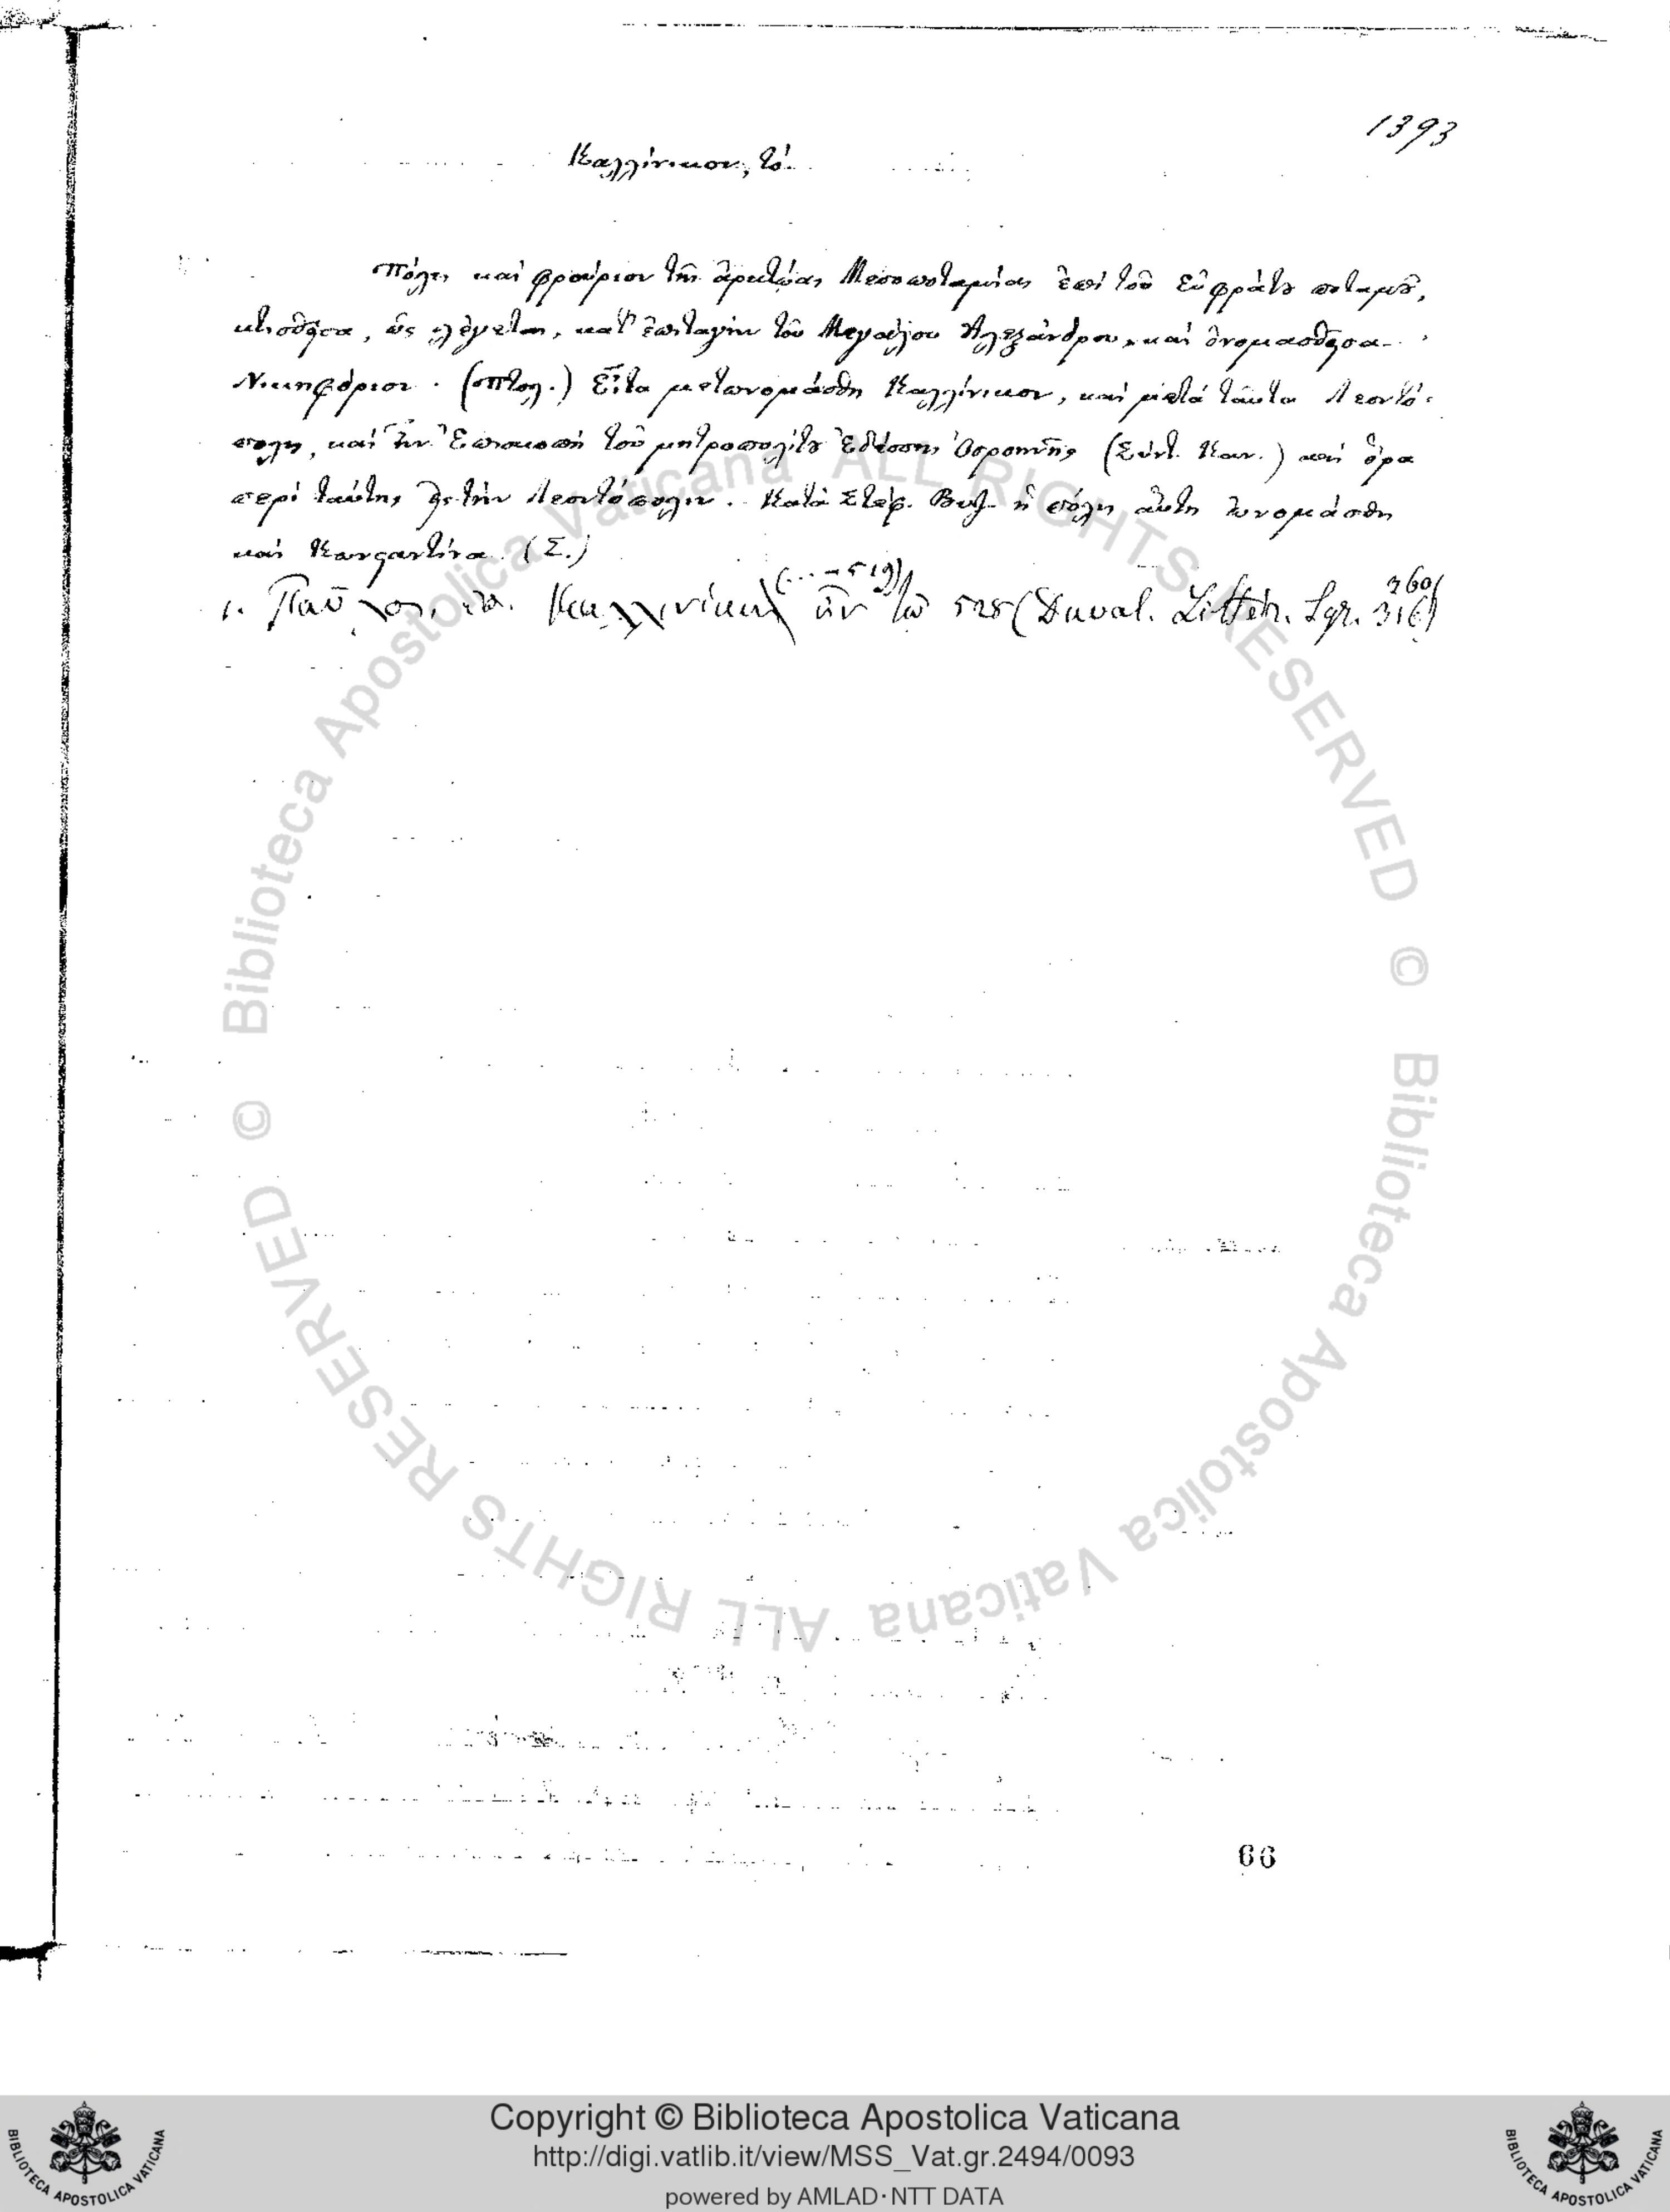 1393
Καλλίνικον, τό.
Πόλις καὶ φρούριον τῆς ἀρκτώας Μεσοποταμίας ἐπὶ τοῦ Εὐφράτου ποταμοῦ,
κτισθεῖσα, ὡς λέγεται, κατ' ἐπιταγὴν τοῦ Μεγάλου Ἀλεξάνδρου, καὶ ὀνομασθεῖσα
Νικηφόριον. (Πτολ.) Εἶτα μετωνομάσθη Καλλίνικον, καὶ μετὰ ταῦτα Λεοντό-
πολις, καὶ ἦν Ἐπισκοπὴ τοῦ μητροπολίτου Ἐδέσσης Ὀσροηνῆς (Σύντ. Καν.) καὶ ὅρα
περὶ ταύτης εἰς τὴν Λεοντόπολιν. Κατὰ Στέφ. Βυζ. ἡ πόλις αὕτη ὠνομάσθη
καὶ (Σ.)
(... – 519)
360
1. Παῦλος, ἐπ. Καλλινίκου ἦν τῷ 528 (Duval. Littér. Syr. 316)
66
© Biblioteca Apostolica Vaticana ALL RIGHTS RESERVED
© Biblioteca Apostolica Vaticana ALL RIGHTS RESERVED
Copyright © Biblioteca Apostolica Vaticana
http://digi.vatlib.it/view/MSS_Vat.gr.2494/0093
powered by AMLAD·NTT DATA
BIBLIOTECA APOSTOLICA VATICANA
BIBLIOTECA APOSTOLICA VATICANA